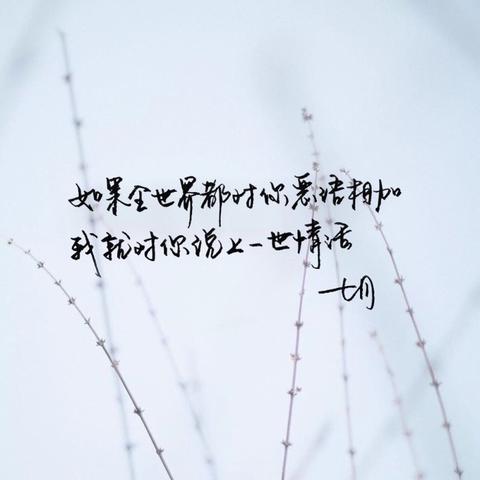 如果全世界都对你恶语相加
我就对你说上一世情话
七月